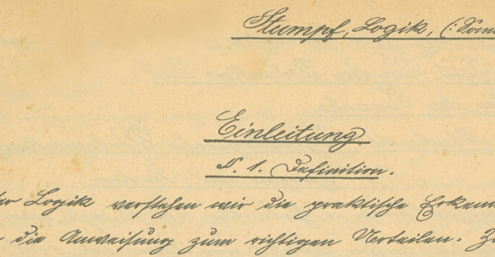 Stumpf, Logik, (: Som
Einleitung.
§. 1. Definition.
der Logik verstehen wir die praktische Erkenn
die Anweisung zum richtigen Urteilen. Zu